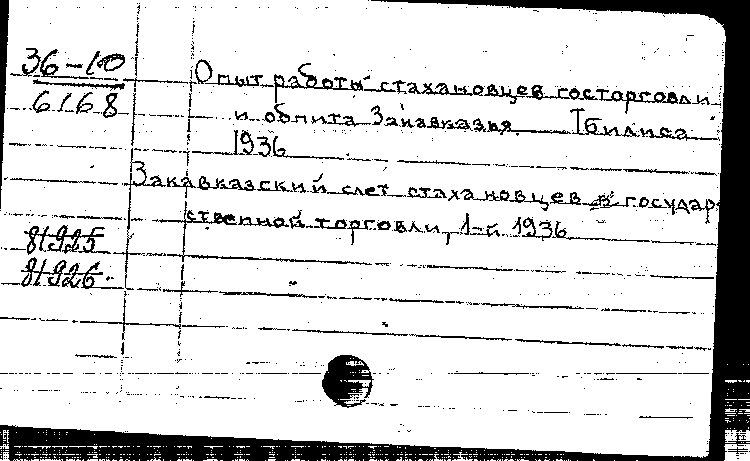 36-10
6168
Опыт работы стахановцев госторговли
и общита Закавказья Тбилиса
1936
Закавказский слет стахановцев в государ
ственной торговли, 1-й 1936
81925
81926.